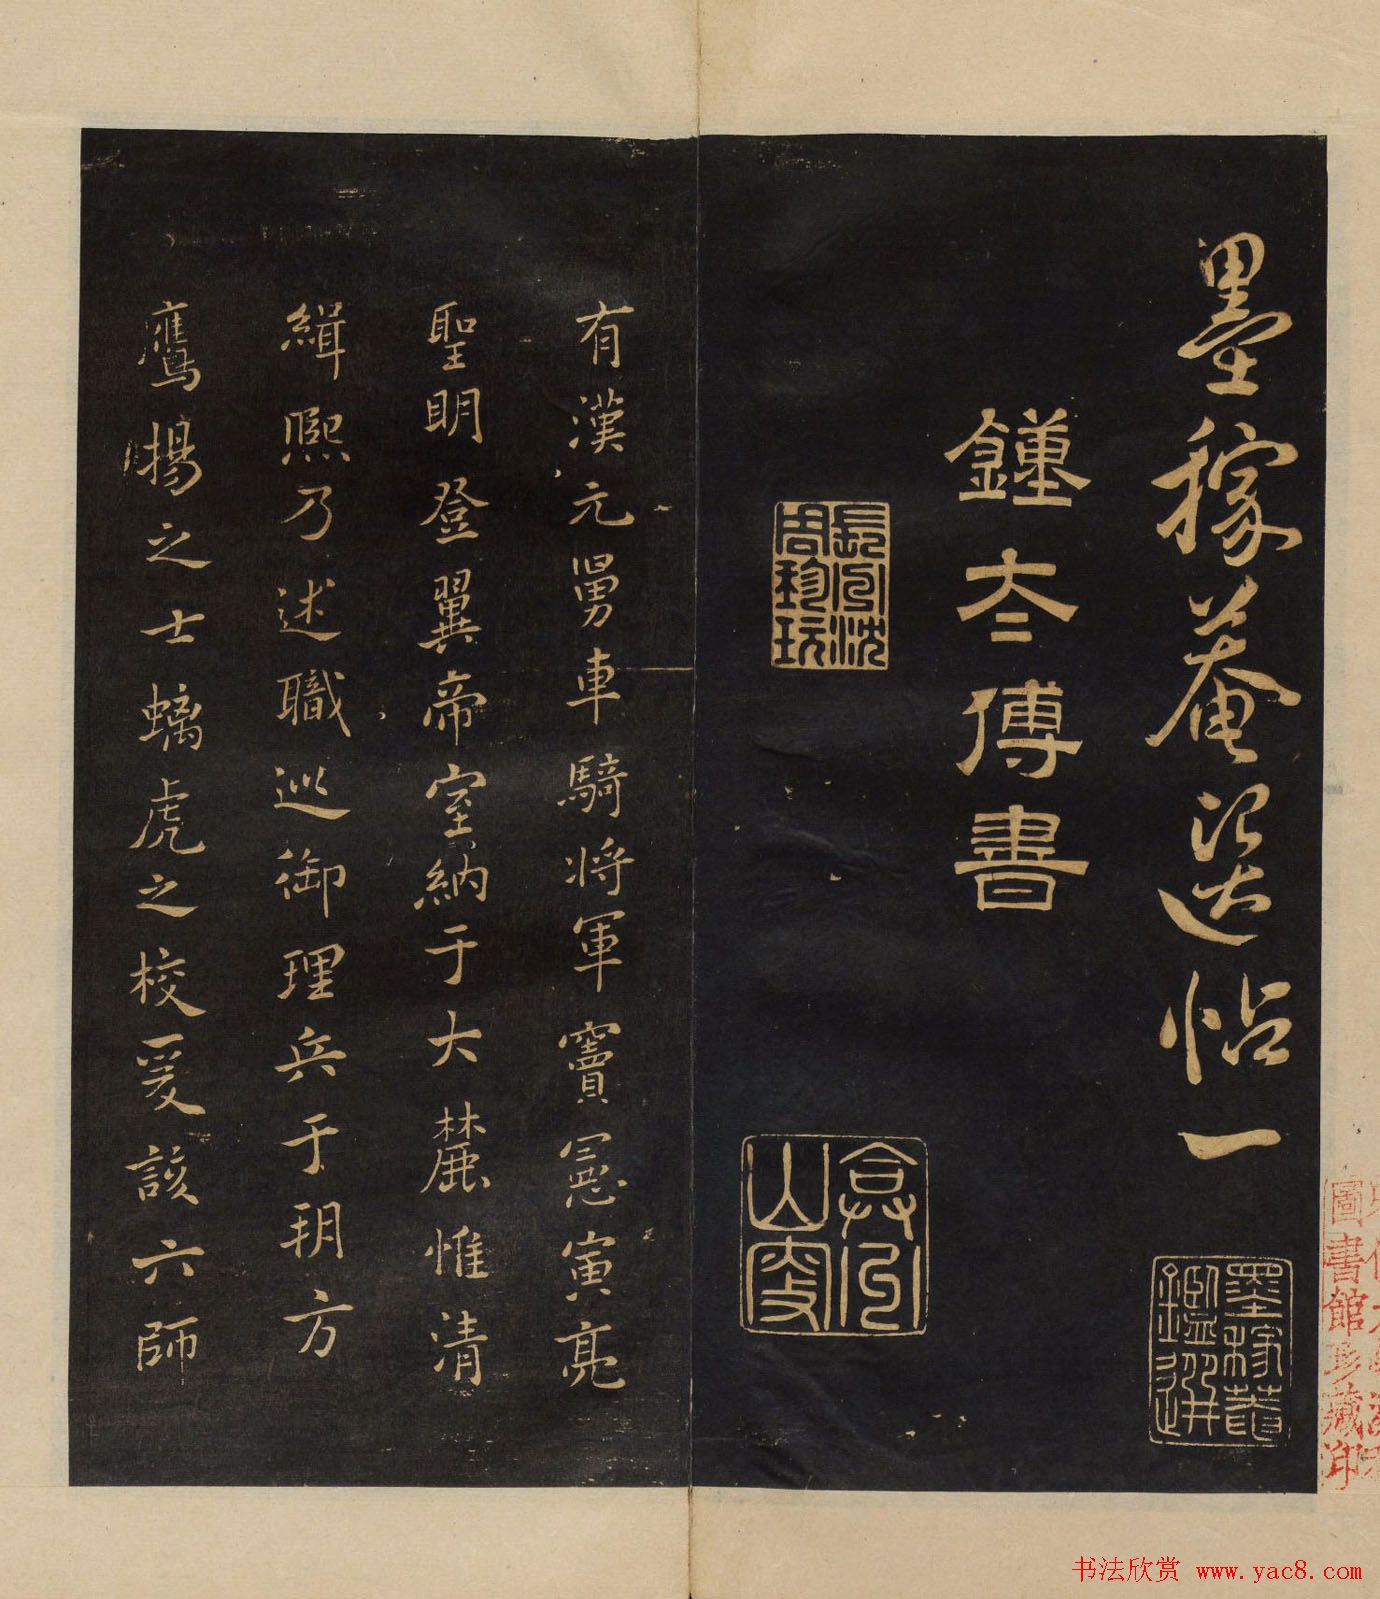 墨稼菴選帖一
鍾夳傅書
墨稼菴
鑑選
圖書館珍藏印
有漢元舅車騎将軍竇憲寅亮
聖明登翼帝室納于大麓惟清
緝熙乃述職巡御理兵于朔方
鷹揚之士螭虎之校爰該六師
书法欣赏 www.yac8.com